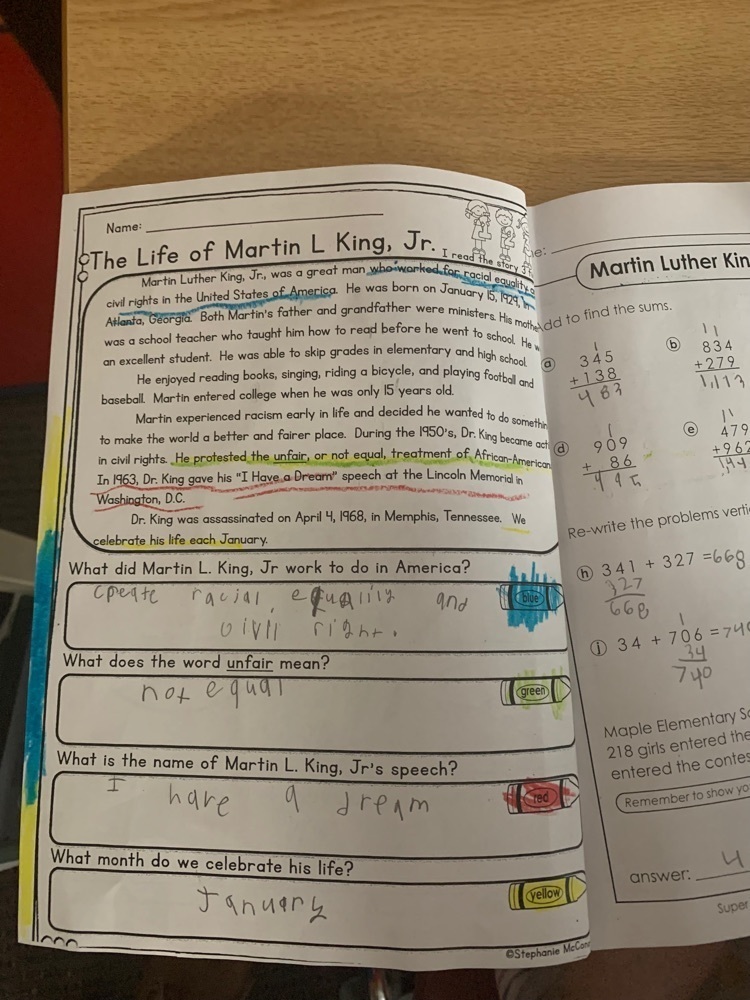 Name:
The Life of Martin L King, Jr.
I read the story 3
Martin Luther King, Jr., was a great man who worked for racial equality
civil rights in the United States of America. He was born on January 15, 1929, in
Atlanta, Georgia. Both Martin's father and grandfather were ministers. His mothe
was a school teacher who taught him how to read before he went to school. He w
an excellent student. He was able to skip grades in elementary and high school.
He enjoyed reading books, singing, riding a bicycle, and playing football and
baseball. Martin entered college when he was only 15 years old.
Martin experienced racism early in life and decided he wanted to do somethin
to make the world a better and fairer place. During the 1950's, Dr. King became act
in civil rights. He protested the unfair, or not equal, treatment of African-American
In 1963, Dr. King gave his "I Have a Dream" speech at the Lincoln Memorial in
Washington, D.C.
Dr. King was assassinated on April 4, 1968, in Memphis, Tennessee. We
celebrate his life each January.
What did Martin L. King, Jr work to do in America?
create racial equality and
civil right.
blue
What does the word unfair mean?
not equal
green
What is the name of Martin L. King, Jr's speech?
I have a dream
red
What month do we celebrate his life?
January
yellow
©Stephanie McCon
e:
Martin Luther Kin
dd to find the sums.
a
1
345
+138
483
b
11
834
+279
1,113
d
1
909
+ 86
e
11
479
+962
Re-write the problems verti
h 341 + 327 =668
327
668
j 34 + 706 =740
1
34
740
Maple Elementary Sc
218 girls entered the
entered the contes
Remember to show yo
answer: 4
Super